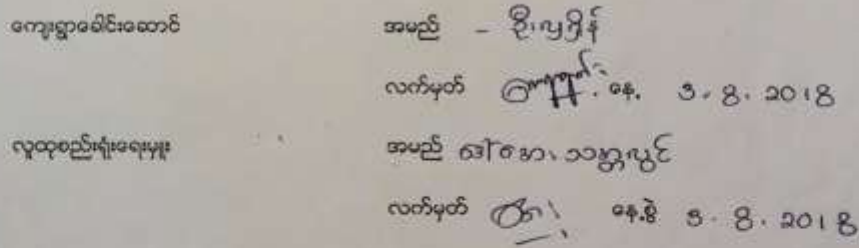 ကျေးရွာခေါင်းဆောင် အမည် - ဦးလှရှိန်
လက်မှတ် နေ့ 3.8.2018
လူထုစည်းရုံးရေးမှူး အမည် ဒေါ်အေး သန္တာလွင်
လက်မှတ် နေ့စွဲ 3.8.2018